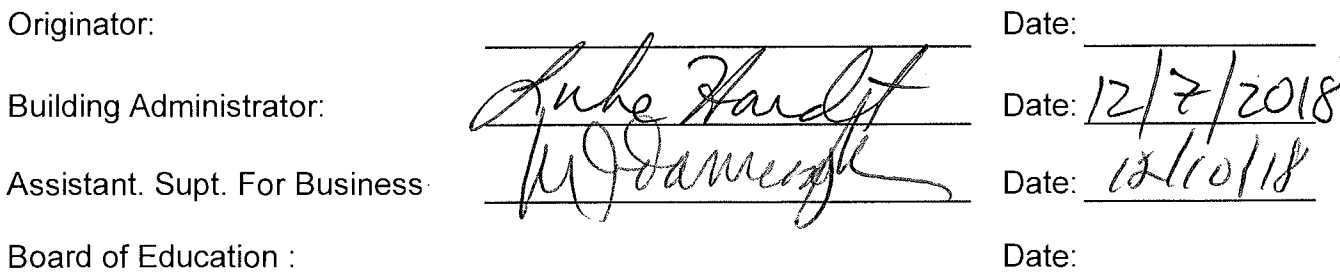 Originator: Date:
Building Administrator: Luke Hardt Date: 12/7/2018
Assistant. Supt. For Business Date: 12/10/18
Board of Education : Date: